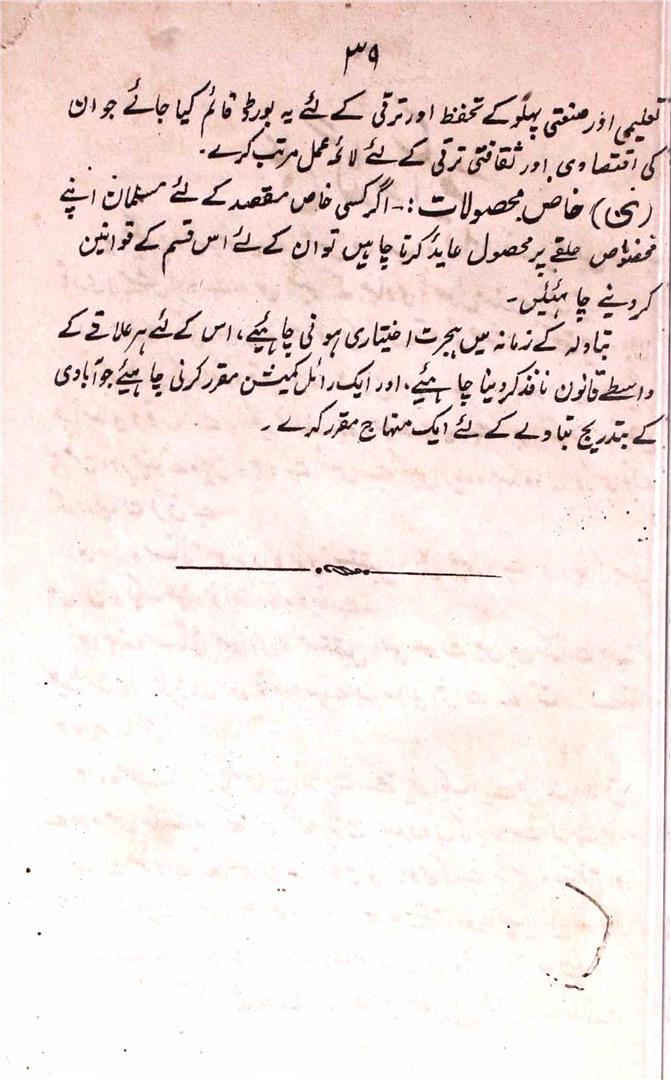 ۳۹
تعلیمی اور صنعتی پہلو کے تحفظ اور ترقی کے لئے یہ بورڈ قائم کیا جائے جو ان
کی اقتصادی اور ثقافتی ترقی کے لئے لائحہ عمل مرتب کرے۔
خاص محصولات :- اگر کسی خاص مقصد کے لئے مسلمان اپنے
مخصوص حلقے پر محصول عاید کرنا چاہیں تو ان کے لئے اس قسم کے قوانین
کر دینے چاہئیں۔
تبادلہ کے زمانہ میں ہجرت اختیاری ہونی چاہیئے، اس کے لئے ہر علاقے کے
واسطے قانون نافذ کر دینا چاہیئے، اور ایک رائل کمیشن مقرر کرنی چاہیئے جو آبادی
کے بتدریج تبادلے کے لئے ایک منہاج مقرر کرے۔